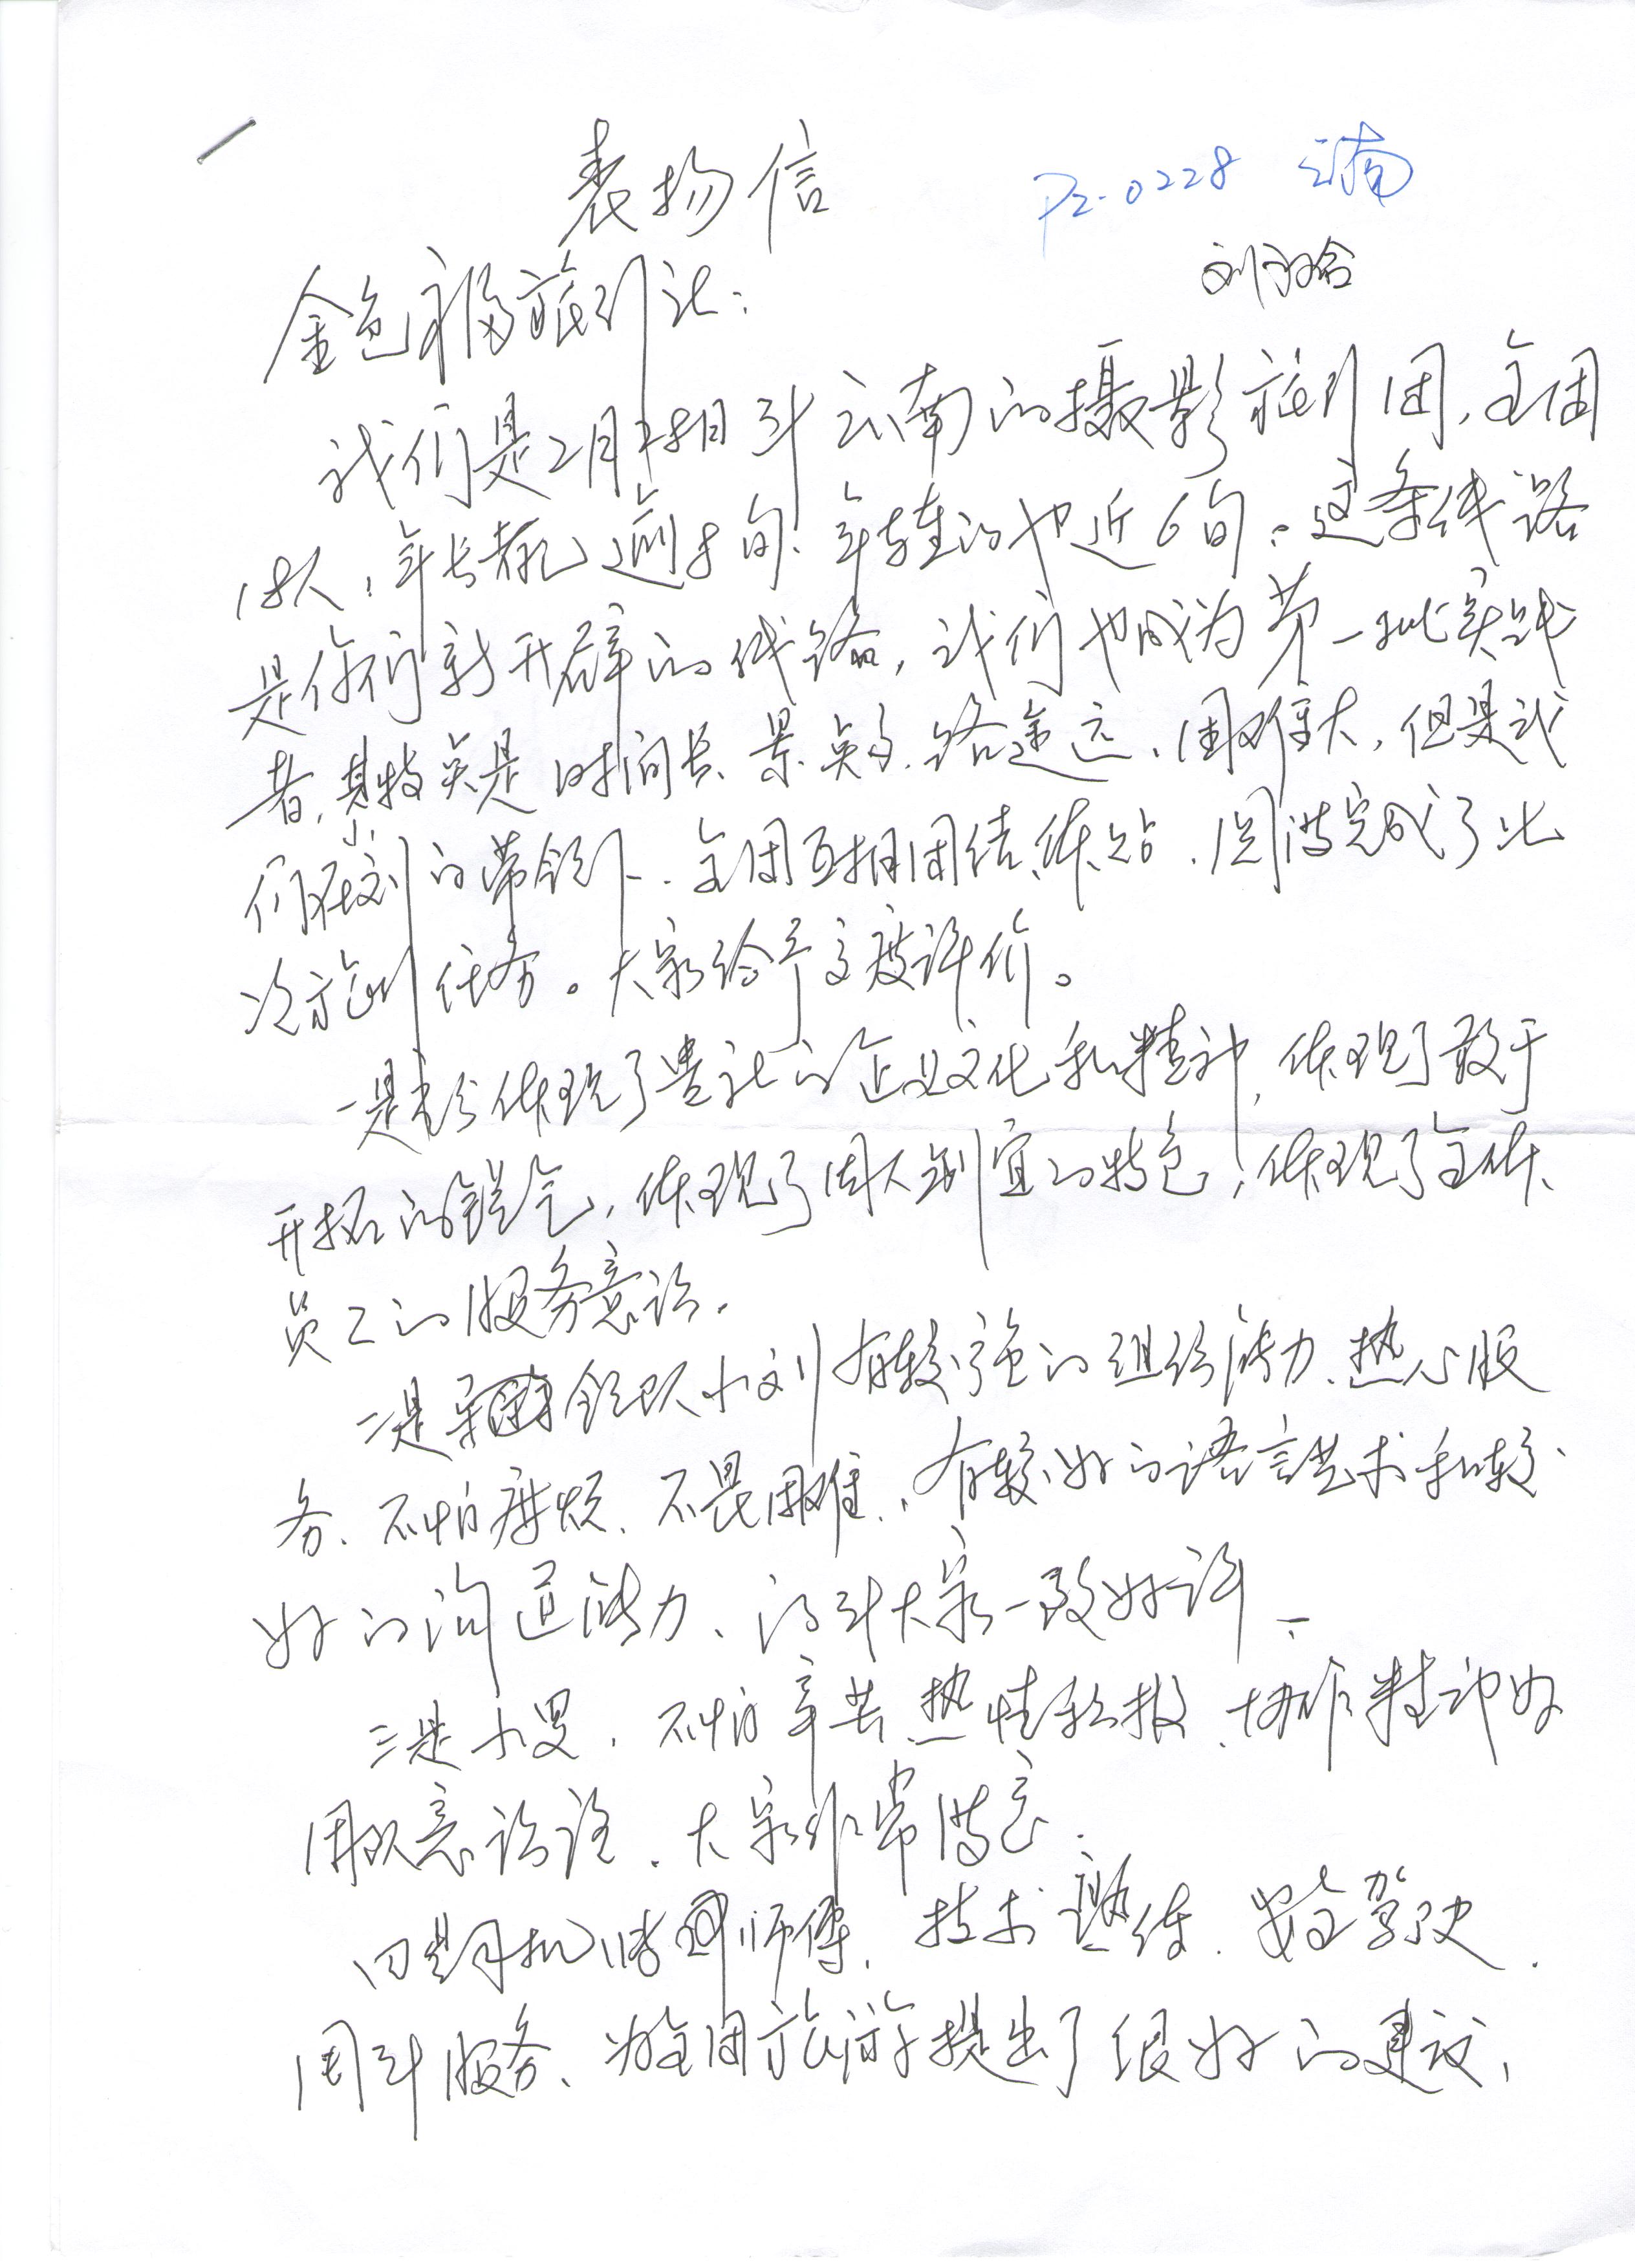 表扬信
PZ-0228 云南
刘
金色福旅行社：
我们是2月28日到云南的摄影旅行团，全团
18人，年长者已逾8旬、年轻的也近6旬。这条线路
是你们新开辟的线路，我们也成为第一批实践
者，其特点是时间长、景点多、路途远、困难大，但是我
们在小刘的带领下、全团互相团结体贴、圆满完成了此
次旅行任务。大家给予高度评价。
一是充分体现了贵社的企业文化和精神，体现了敢于
开拓的锐气，体现了因人制宜的特色，体现了全体
员工的服务意识。
二是领队小刘有较强的组织能力、热心服
务、不怕麻烦、不畏困难、有较好的语言艺术和较
好的沟通能力、得到大家一致好评。
三是小罗，不怕辛苦、热情积极、协作精神好
团队意识强、大家非常满意。
四是司机师傅、技术熟练、安全驾驶、
周到服务、为全团旅游提出了很好的建议、